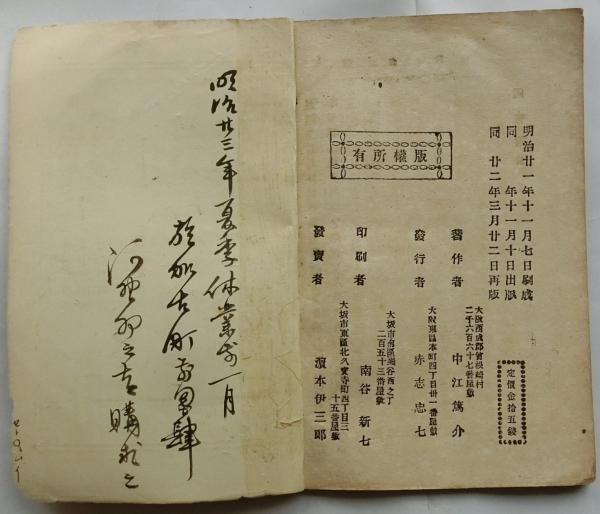 明治廿一年十一月七日刷成
同　年十一月十日出版
同　廿二年三月廿二日再版
定價金拾五錢
版權所有
著作者
大阪西成郡曾根崎村
二千六百六十七番屋敷
中江篤介
發行者
大阪東區本町四丁目卅一番屋敷
赤志忠七
印刷者
大坂市南區鹽谷西之丁
二百五十三番屋敷
南谷新七
發賣者
大坂市東區北久寶寺町四丁目三
十五番屋敷
濵本伊三郎
明治廿三年夏季休業前一月
於加古町
購求之